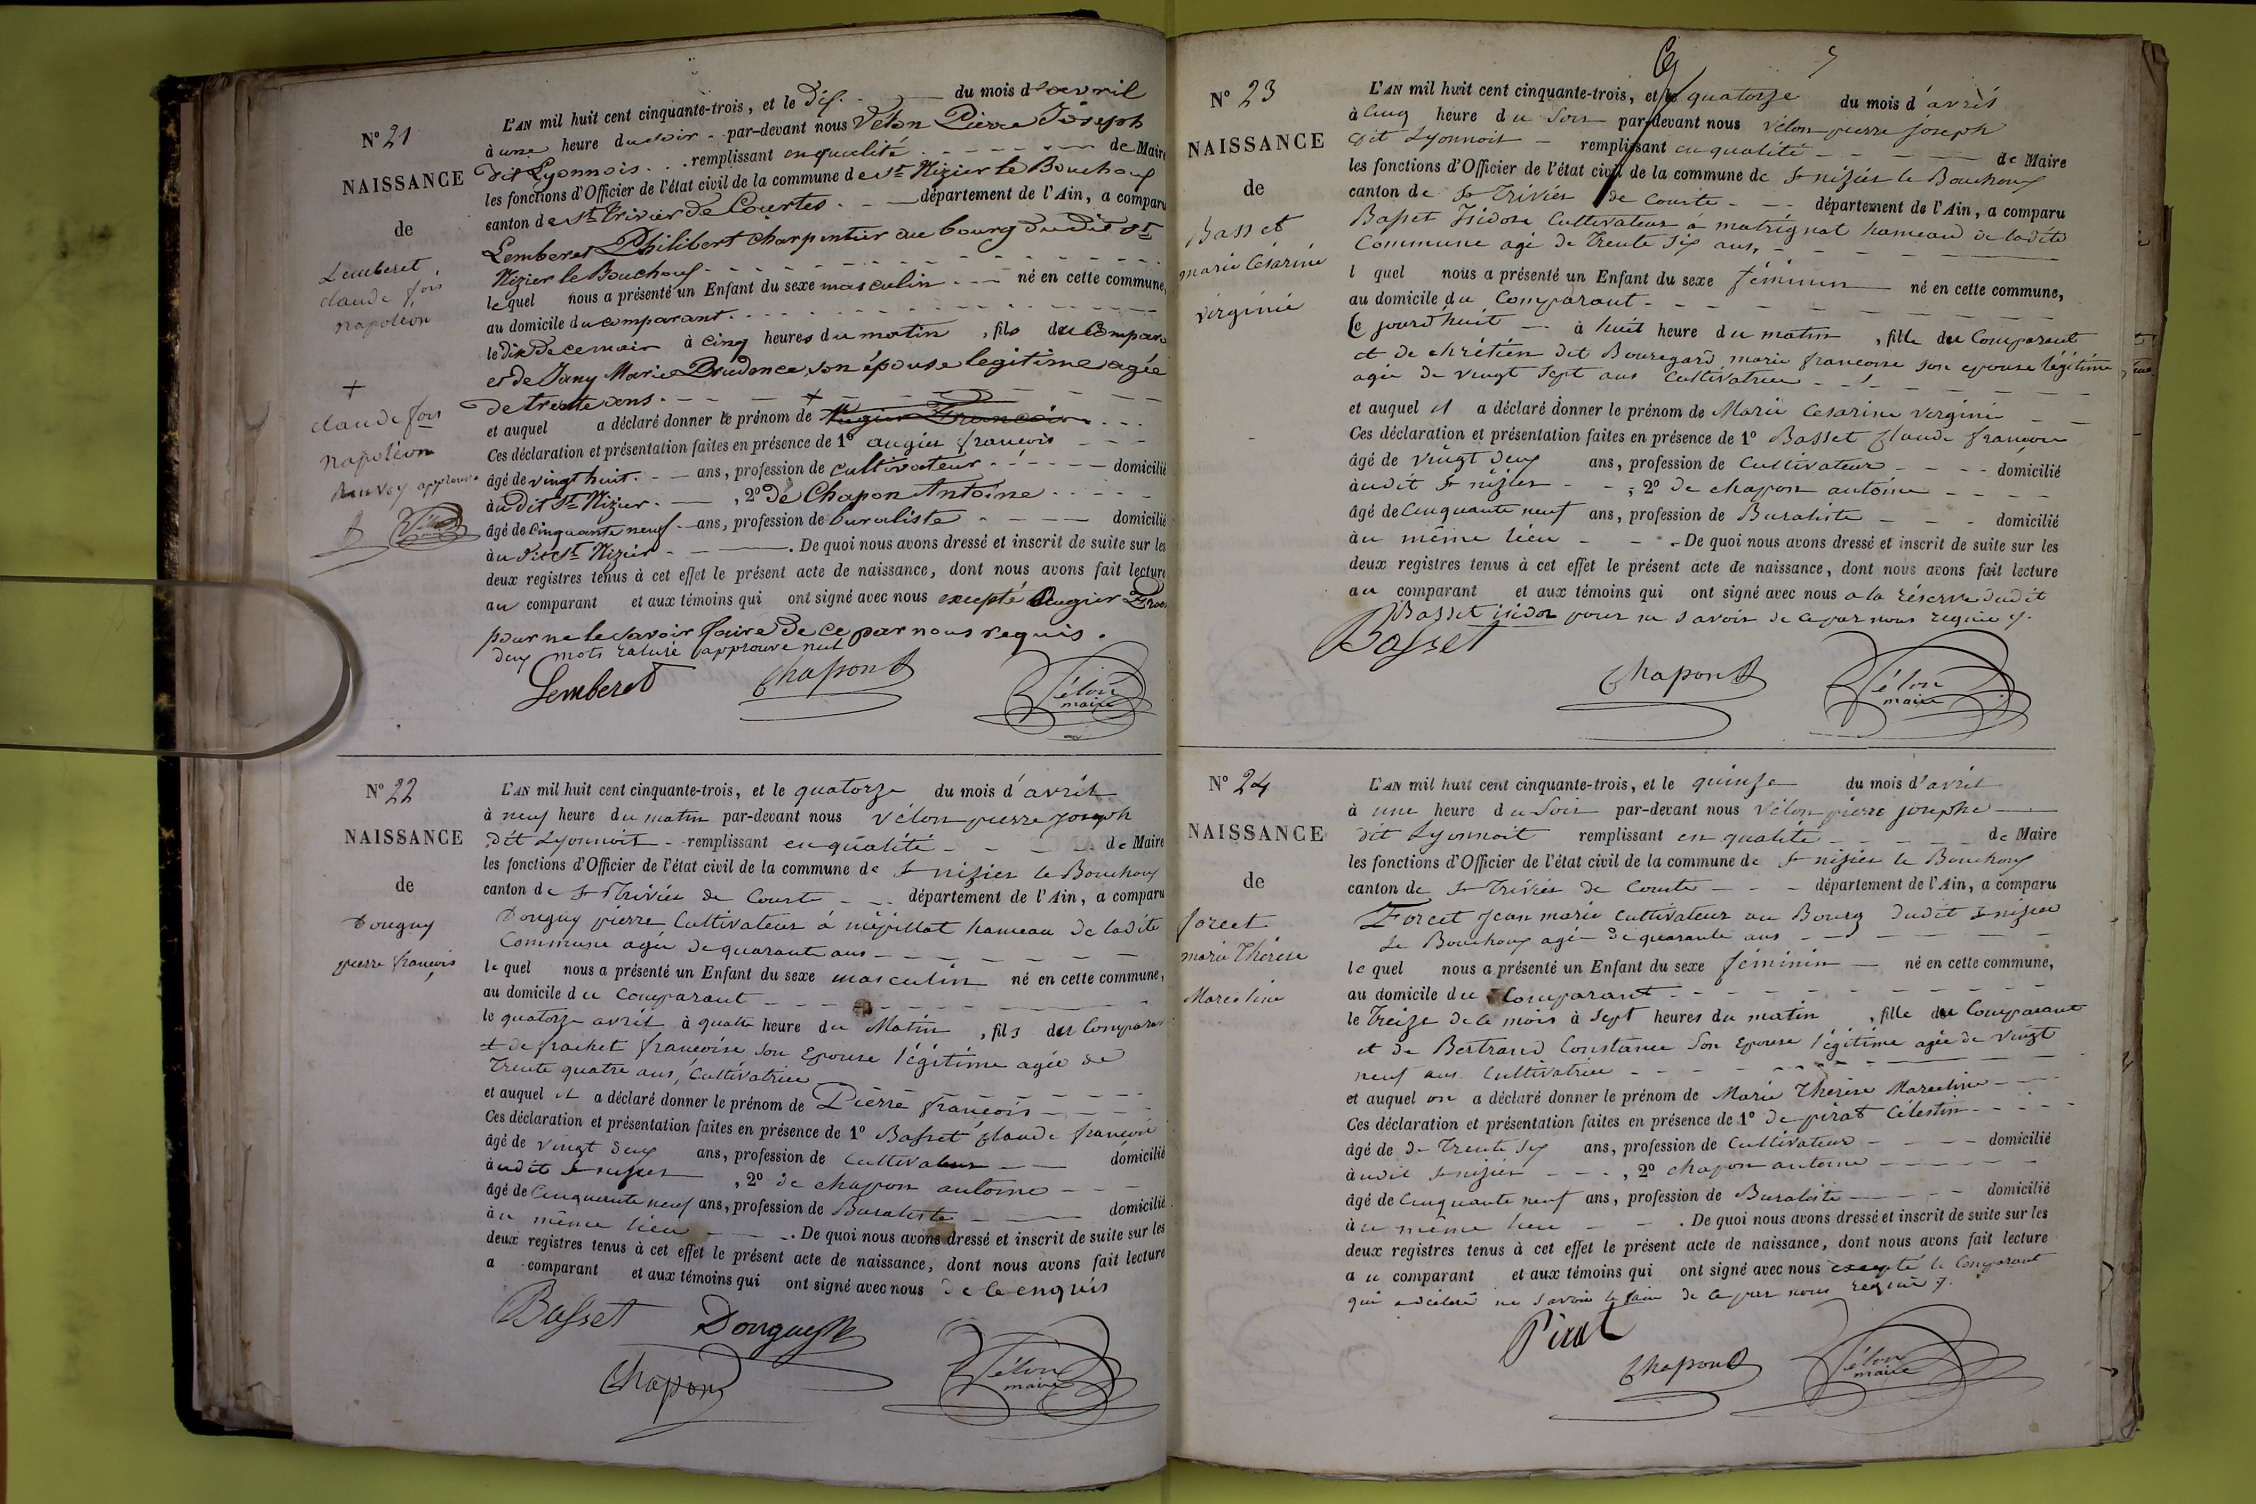 N° 21
NAISSANCE
de
Lemberet
claude fois
napoléon
+
claude fois
napoléon
approuvé
L'AN mil huit cent cinquante-trois, et le dix du mois d'avril
à une heure du soir par-devant nous Velon Pierre Joseph
dit Lyonnois remplissant en qualité de Maire
les fonctions d'Officier de l'état civil de la commune de St Nizier le Bouchoux
canton de St Trivier de Courtes département de l'Ain, a comparu
Lemberet Philibert charpentier au bourg dudit St
Nizier le Bouchoux
lequel nous a présenté un Enfant du sexe masculin né en cette commune,
au domicile du comparant
le dix de ce mois à cinq heures du matin, fils du Compar
et de Jany Marie Prudence, son épouse legitime agée
de trente ans
et auquel a déclaré donner le prénom de +
Ces déclaration et présentation faites en présence de 1° augier françois
âgé de vingt huit ans, profession de cultivateur domicilié
à dit St Nizier, 2° de Chapon Antoine
âgé de cinquante neuf ans, profession de buraliste domicilié
à dit St Nizier. De quoi nous avons dressé et inscrit de suite sur les
deux registres tenus à cet effet le présent acte de naissance, dont nous avons fait lecture
au comparant et aux témoins qui ont signé avec nous excepté Augier
pour ne le savoir faire de ce par nous requis.
deux mots raturé approuvé nul
Lemberet Chapon Vélon
maire
N° 22
NAISSANCE
de
Donguy
pierre françois
L'AN mil huit cent cinquante-trois, et le quatorze du mois d'avril
à neuf heure du matin par-devant nous Vélon pierre joseph
dit Lyonnoit remplissant en qualité de Maire
les fonctions d'Officier de l'état civil de la commune de St nizier le Bouchoux
canton de St Trivier de Courte département de l'Ain, a comparu
Donguy pierre Cultivateur à mépillat hameau de ladite
Commune agé de quarante ans
lequel nous a présenté un Enfant du sexe masculin né en cette commune,
au domicile du Comparant
le quatorze avril à quatre heure du Matin, fils du Comparant
et de prachet françoise son Epouse légitime agée de
Trente quatre ans, Cultivatrice
et auquel il a déclaré donner le prénom de Pierre françois
Ces déclaration et présentation faites en présence de 1° Basset Claude françois
âgé de vingt deux ans, profession de Cultivateur domicilié
à udit St nizier, 2° de chapon antoine
âgé de Cinquante neuf ans, profession de Buraliste domicilié
à u même lieu. De quoi nous avons dressé et inscrit de suite sur les
deux registres tenus à cet effet le présent acte de naissance, dont nous avons fait lecture
a comparant et aux témoins qui ont signé avec nous de ce enquis
Basset Donguy
Chapon Vélon
maire
N° 23
NAISSANCE
de
Basset
marie Césarine
virginie
L'AN mil huit cent cinquante-trois, et le quatorze du mois d'avril
à Cinq heure du Soir par-devant nous Vélon pierre joseph
dit Lyonnoit remplissant en qualité de Maire
les fonctions d'Officier de l'état civil de la commune de St nizier le Bouchoux
canton de St Trivier de Courte département de l'Ain, a comparu
Basset Isidore Cultivateur à matrignat hameau de ladite
Commune agé de Trente six ans,
l quel nous a présenté un Enfant du sexe féminin né en cette commune,
au domicile du Comparant
Ce jourd'huit à huit heure du matin, fille du Comparant
et de chrétien dit Bouregard marie francoise son epouse légitime
agée de vingt Sept ans Cultivatrice
et auquel il a déclaré donner le prénom de Marie Cesarine Verginie
Ces déclaration et présentation faites en présence de 1° Basset Claude françois
âgé de vingt deux ans, profession de Cultivateur domicilié
à udit St nizier, 2° de chapon antoine
âgé de Cinquante neuf ans, profession de Buraliste domicilié
à u même lieu. De quoi nous avons dressé et inscrit de suite sur les
deux registres tenus à cet effet le présent acte de naissance, dont nous avons fait lecture
au comparant et aux témoins qui ont signé avec nous a la réserve dudit
Basset isidor pour ne savoir de ce par nous requis
Basset
Chapon Vélon
maire
N° 24
NAISSANCE
de
forcet
marie Thérèse
Marceline
L'AN mil huit cent cinquante-trois, et le quinze du mois d'avril
à une heure du Soir par-devant nous Vélon pierre josephe
dit Lyonnoit remplissant en qualité de Maire
les fonctions d'Officier de l'état civil de la commune de St nizier le Bouchoux
canton de St Trivier de Courte département de l'Ain, a comparu
Forcet Jean marie Cultivateur au Bourg dudit St nizier
le Bouchoux agé de quarante ans
lequel nous a présenté un Enfant du sexe féminin né en cette commune,
au domicile du Comparant
le Treize de ce mois à Sept heures du matin, fille du Comparant
et de Bertrand Constance Son Epouse légitime agée de vingt
neuf ans Cultivatrice
et auquel on a déclaré donner le prénom de Marie Thérèse Marceline
Ces déclaration et présentation faites en présence de 1° de pirat Célestin
âgé de de Trente six ans, profession de Cultivateur domicilié
à udit St nizier, 2° chapon antoine
âgé de Cinquante neuf ans, profession de Buraliste domicilié
à u même lieu. De quoi nous avons dressé et inscrit de suite sur les
deux registres tenus à cet effet le présent acte de naissance, dont nous avons fait lecture
a u comparant et aux témoins qui ont signé avec nous excepté le Comparant
qui a déclaré ne Savoir le faire de ce par nous requis
Pirat
Chapon Vélon
maire